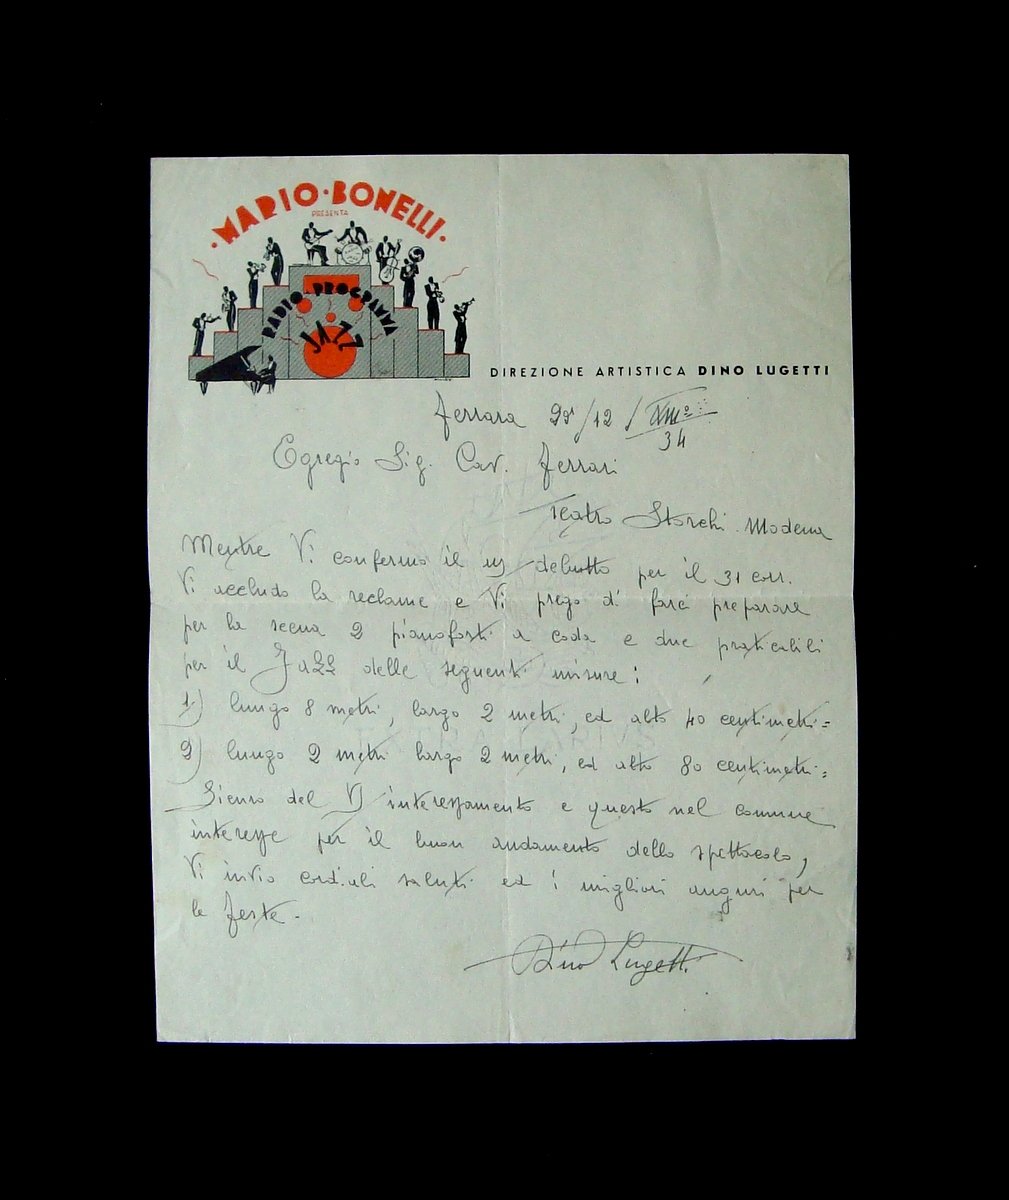 · MARIO · BONELLI ·
PRESENTA
RADIO - PROGRAMMA
JAZZ
DIREZIONE ARTISTICA DINO LUGETTI
Ferrara /12 /
34
Egregio Sig. Cav. Ferrari
Teatro Storchi. Modena
Mentre Vi confermo il ns/ debutto per il 31 corr.
Vi accludo la reclame e Vi prego di farci preparare
per la scena 2 pianoforti a coda e due praticabili
per il Jazz delle seguenti misure:
1) lungo 8 metri, largo 2 metri, ed alto 40 centimetri=
2) lungo 2 metri largo 2 metri, ed alto 80 centimetri=
Sicuro del Vs/ interessamento e questo nel comune
interesse per il buon andamento dello spettacolo,
Vi invio cordiali saluti ed i migliori auguri per
le feste.
Dino Lugetti